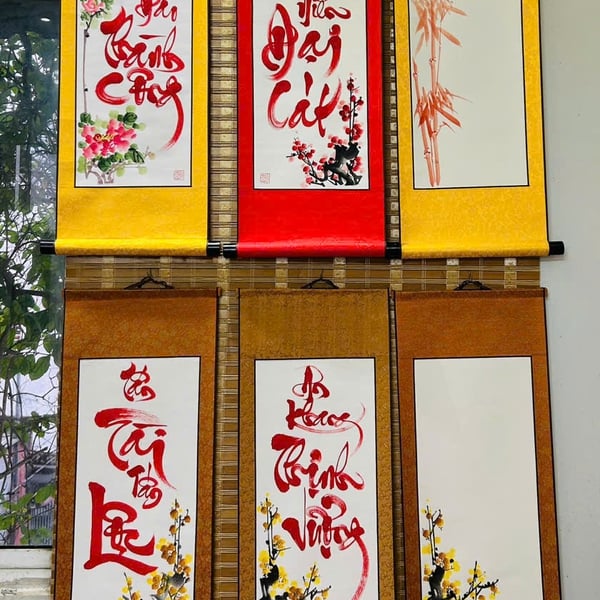 Đáo
Thành
Công
Niên
Đại
Cát
Tấn
Tài
Tấn
Lộc
An
Khang
Thịnh
Vượng